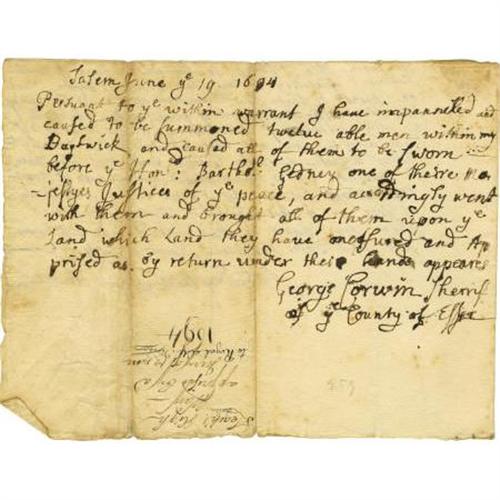 Salem June ye 19 1694
Persuant to ye within warrant I have impannelled and
caused to be summoned twelve able men within my
Bastwick and caused all of them to be sworn
before ye Hond: Barthol: Gedney one of theire Ma
-jestyes Justices of ye peace, and accordingly went
with them and brought all of them upon ye
Land which Land they have measured and Ap
prised as by return under their hands appeares
George Corwin Sherrif
of ye County of Essex
1694